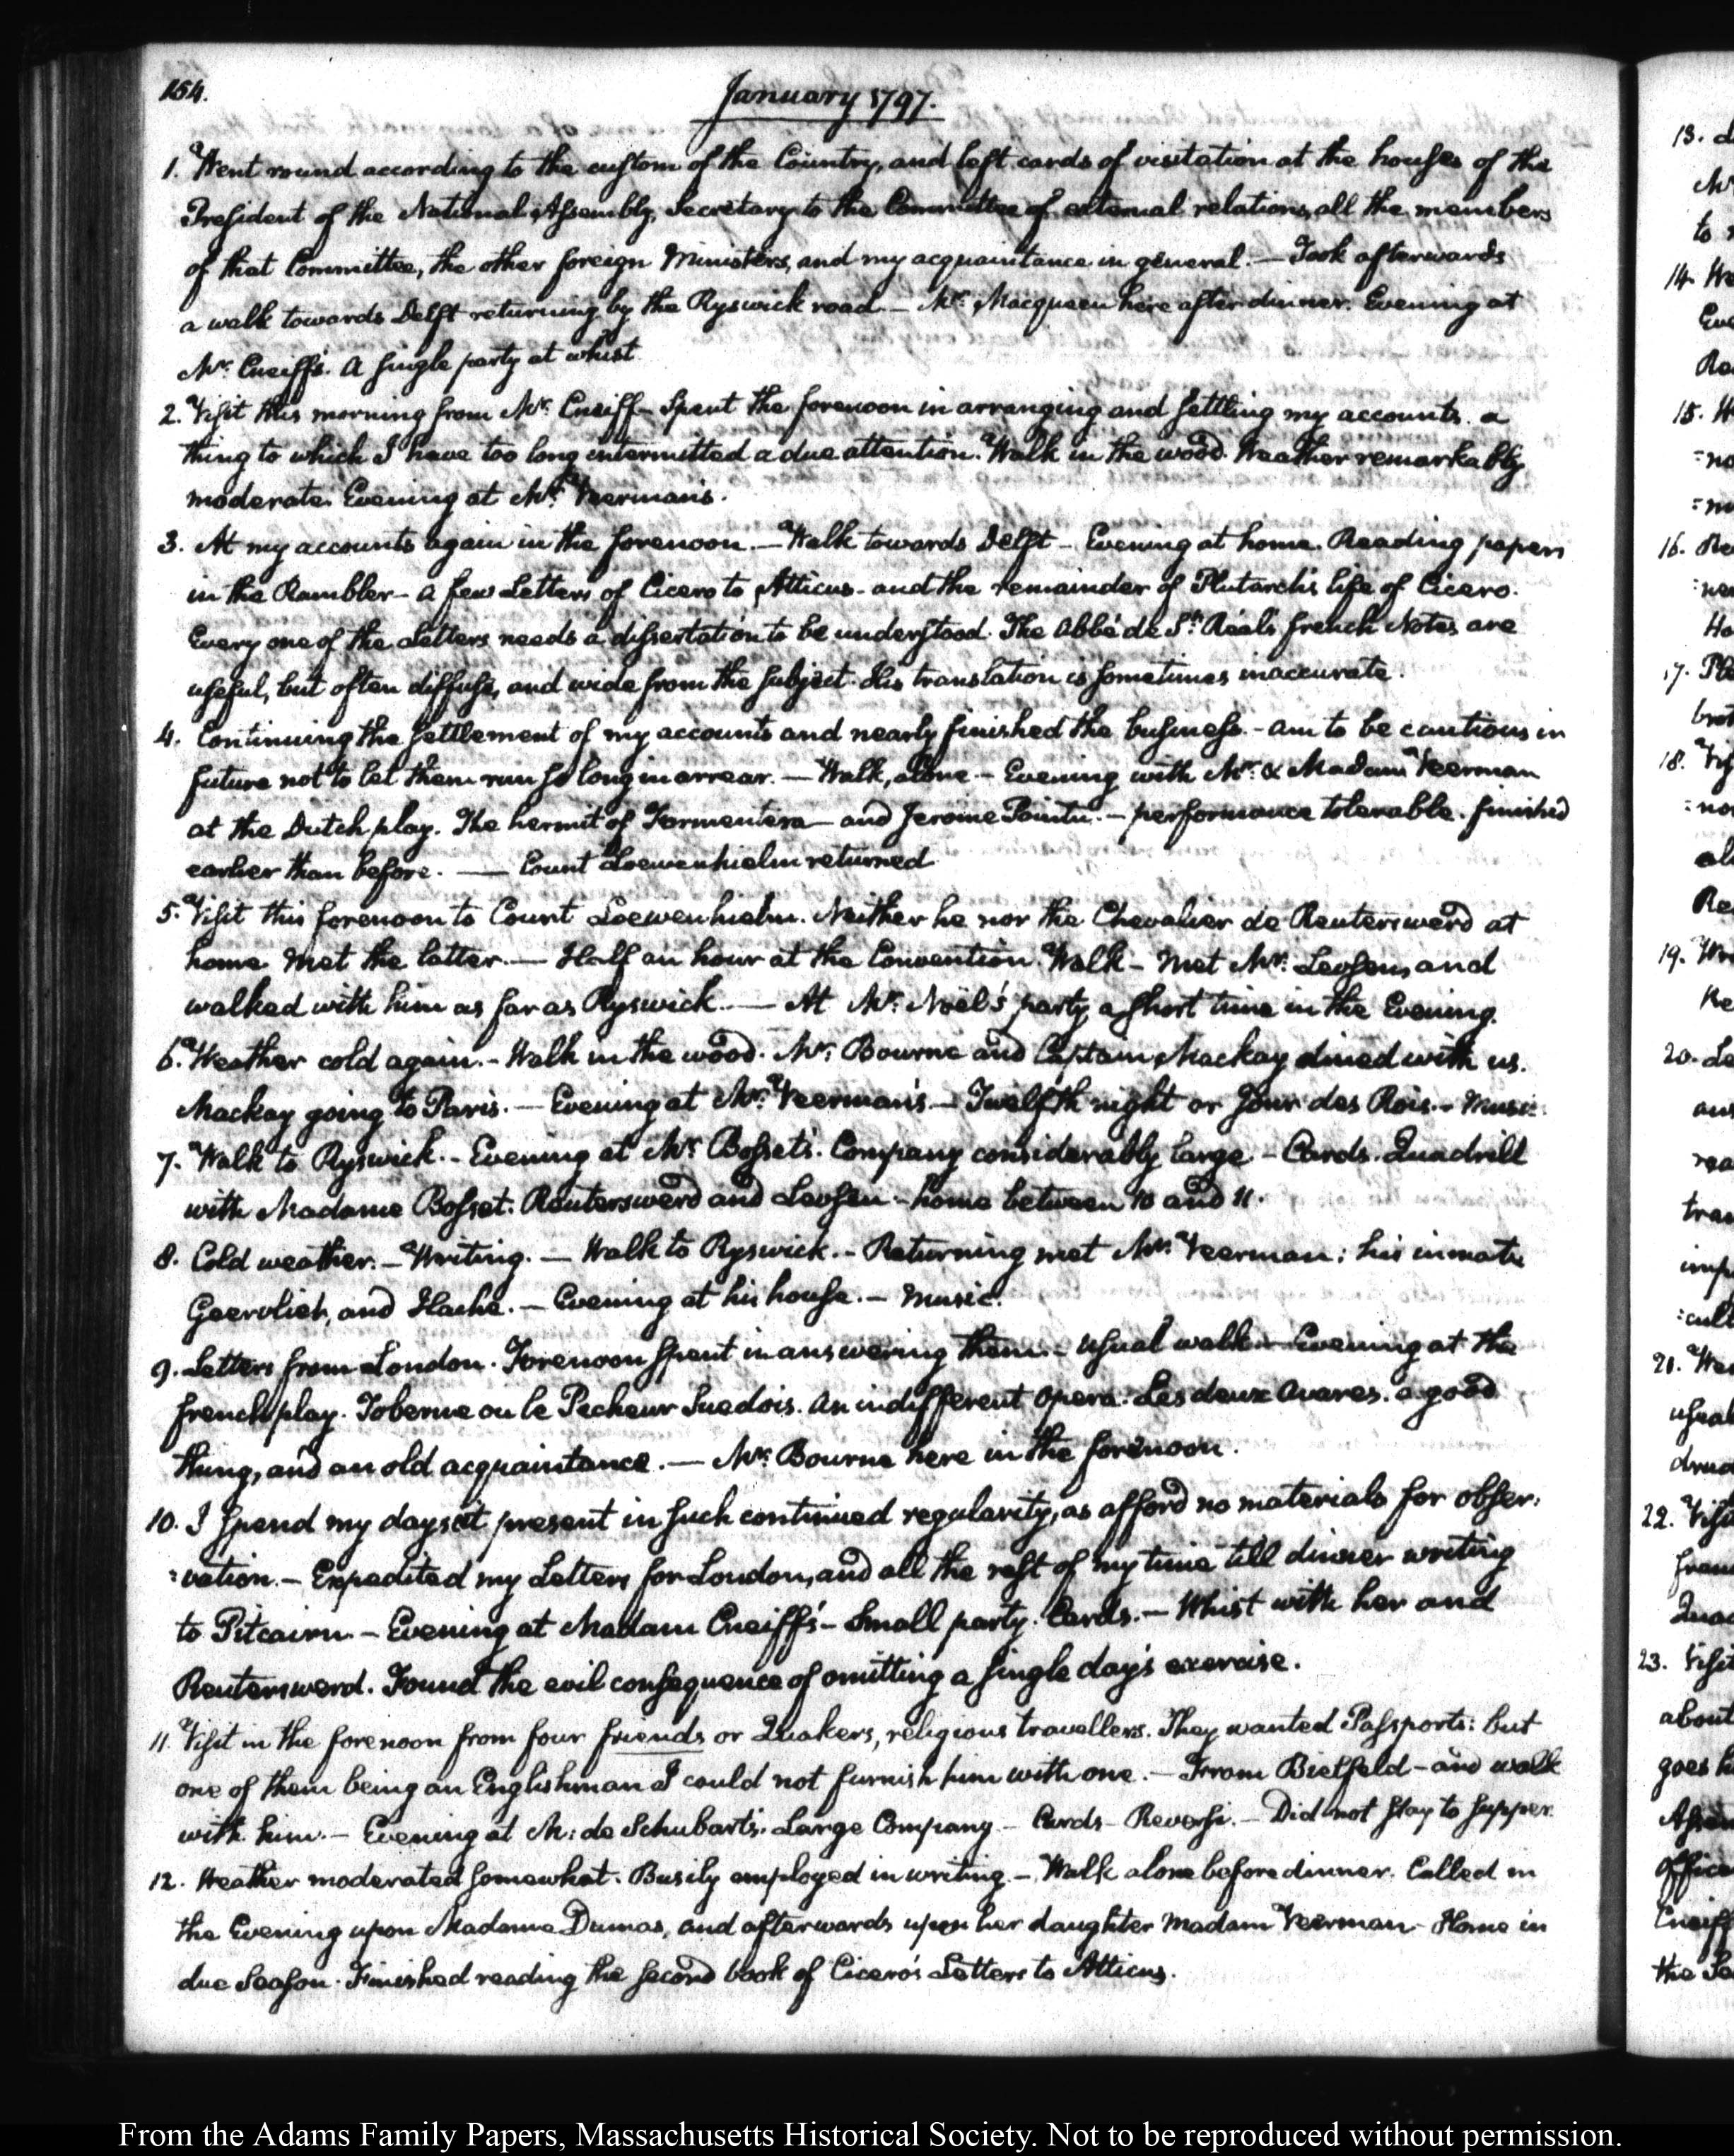 154.
January 1797.
1. Went round according to the custom of the Country, and left cards of visitation at the houses of the
President of the National Assembly, Secretary to the Committee of external relations, all the members
of that Committee, the other foreign Ministers, and my acquaintance in general. — Took afterwards
a walk towards Delft returning by the Ryswick road — Mr. Macqueen here after dinner. Evening at
Mr. Cneiff's. A single party at whist
2. Visit this morning from Mr. Cneiff — Spent the forenoon in arranging and settling my accounts. a
thing to which I have too long intermitted a due attention. Walk in the wood. Weather remarkably
moderate. Evening at Mr. Veerman's.
3. At my accounts again in the forenoon. — Walk towards Delft — Evening at home. Reading papers
in the Rambler — a few Letters of Cicero to Atticus — and the remainder of Plutarch's life of Cicero.
Every one of the Letters needs a dissertation to be understood. The Abbé de St. Réal's french Notes are
useful, but often diffuse, and wide from the subject. His translation is sometimes inaccurate.
4. Continuing the settlement of my accounts and nearly finished the business. — am to be cautious in
future not to let them run so long in arrear. — Walk, alone — Evening with Mr. & Madam Veerman
at the Dutch play. The hermit of Formentera — and Jerome Pointu. — performance tolerable. finish'd
earlier than before. — Count Loewenhielm returned
5. Visit this forenoon to Count Loewenhielm. Neither he nor the Chevalier de Reutersward at
home. Met the latter. — Half an hour at the Convention. Walk — Met Mr. Levsen, and
walked with him as far as Ryswick. — At Mr. Noël's party a short time in the Evening.
6. Weather cold again. — Walk in the wood. Mr. Bourne and Captain Mackay dined with us.
Mackay going to Paris. — Evening at Mr. Veerman's — Twelfth night or Jour des Rois. — Music.
7. Walk to Ryswick. — Evening at Mr. Bosset's. Company considerably large — Cards. Quadrill
with Madame Bosset. Reutersward and Levsen — home between 10 and 11.
8. Cold weather. — Writing. — Walk to Ryswick. — Returning met Mr. Veerman; his inmate
and Hache. — Evening at his house. — Music.
9. Letters from London. Forenoon spent in answering them. — usual walk — Evening at the
french play. Toberne ou le Pecheur Suedois. An indifferent Opera. Les deux Avares. a good
thing, and an old acquaintance. — Mr. Bourne here in the forenoon.
10. I spend my days at present in such continued regularity, as afford no materials for obser:
:vation. — Expedited my Letters for London, and all the rest of my time till dinner writing
to Pitcairn — Evening at Madam Cneiff's — Small party. Cards. — Whist with her and
Reutersward. Found the evil consequence of omitting a single day's exercise.
11. Visit in the forenoon from four friends or Quakers, religious travellers. They wanted Passports: but
one of them being an Englishman I could not furnish him with one. — From Bielfeld — and walk
with him. — Evening at M: de Schubart's. Large Company — Cards — Reversi. — Did not stay to supper.
12. Weather moderated somewhat. Busily employed in writing. — Walk alone before dinner. Called in
the Evening upon Madame Dumas, and afterwards upon her daughter Madam Veerman — Home in
due Season. Finished reading the second book of Cicero's Letters to Atticus.
From the Adams Family Papers, Massachusetts Historical Society. Not to be reproduced without permission.